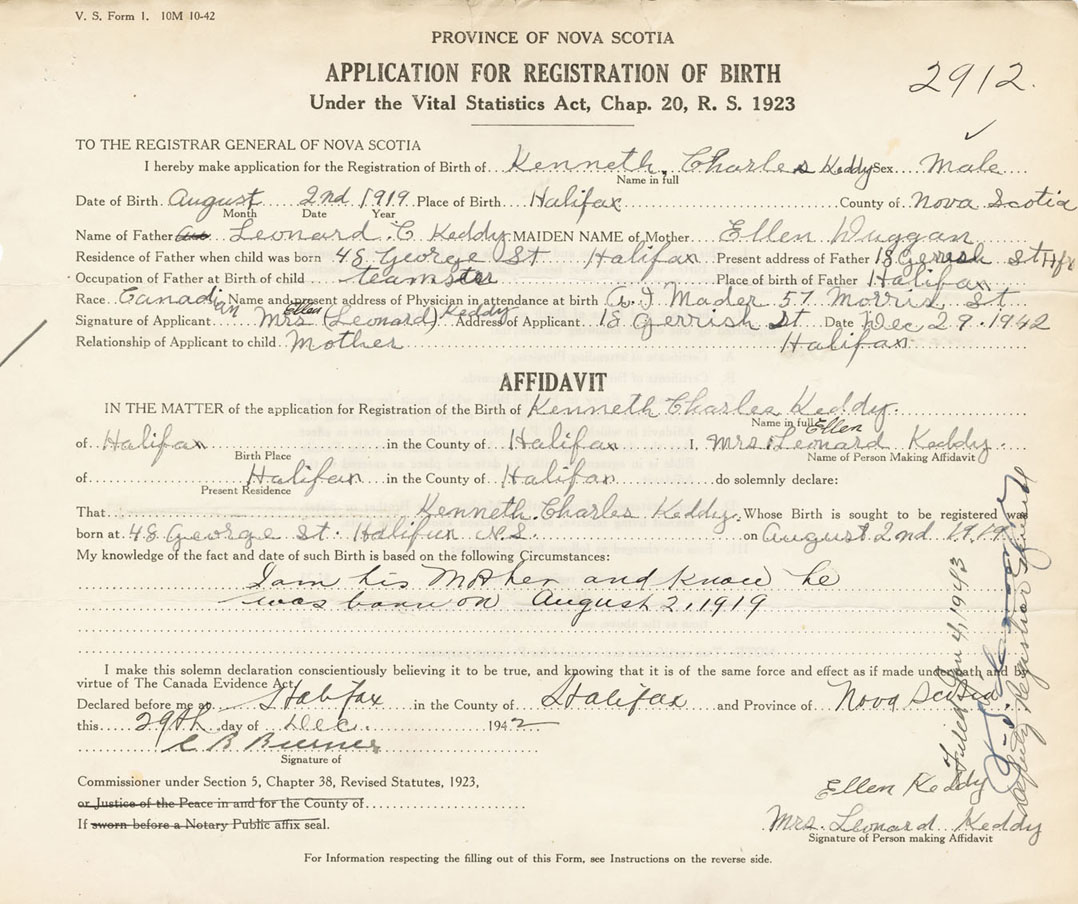 V. S. Form 1. 10M 10-42
PROVINCE OF NOVA SCOTIA
APPLICATION FOR REGISTRATION OF BIRTH
2912.
Under the Vital Statistics Act, Chap. 20, R. S. 1923
TO THE REGISTRAR GENERAL OF NOVA SCOTIA
I hereby make application for the Registration of Birth of Kenneth Charles Keddy Sex Male
Name in full
Date of Birth. August 2nd 1919 Place of Birth Halifax County of Nova Scotia
Month Date Year
Name of Father Leonard C Keddy MAIDEN NAME of Mother Ellen Duggan
Residence of Father when child was born 48 George St Halifax Present address of Father 18 Gerrish St Hfx
Occupation of Father at Birth of child teamster Place of birth of Father Halifax
Race. Canadian Name and present address of Physician in attendance at birth A. I Mader 57 Morris St
Signature of Applicant Mrs Ellen (Leonard) Keddy Address of Applicant 18 Gerrish St Date Dec 29. 1942
Relationship of Applicant to child Mother Halifax
AFFIDAVIT
IN THE MATTER of the application for Registration of the Birth of Kenneth Charles Keddy.
Name in full Ellen
of Halifax in the County of Halifax I, Mrs. Leonard Keddy
Birth Place Name of Person Making Affidavit
of Halifax in the County of Halifax do solemnly declare:
Present Residence
That Kenneth Charles Keddy Whose Birth is sought to be registered was
born at 48 George St. Halifax N.S. on August 2nd 1919
My knowledge of the fact and date of such Birth is based on the following Circumstances:
I am his Mother and know he
was born on August 2, 1919
I make this solemn declaration conscientiously believing it to be true, and knowing that it is of the same force and effect as if made under oath and by
virtue of The Canada Evidence Act.
Declared before me at Halifax in the County of Halifax and Province of Nova Scotia
this 29th day of Dec. 1942
C B
Signature of
Commissioner under Section 5, Chapter 38, Revised Statutes, 1923,
or Justice of the Peace in and for the County of
If sworn before a Notary Public affix seal.
Ellen Keddy
Mrs. Leonard Keddy
Signature of Person making Affidavit
Filed Jan 4, 1943
Deputy Registrar General
For Information respecting the filling out of this Form, see Instructions on the reverse side.